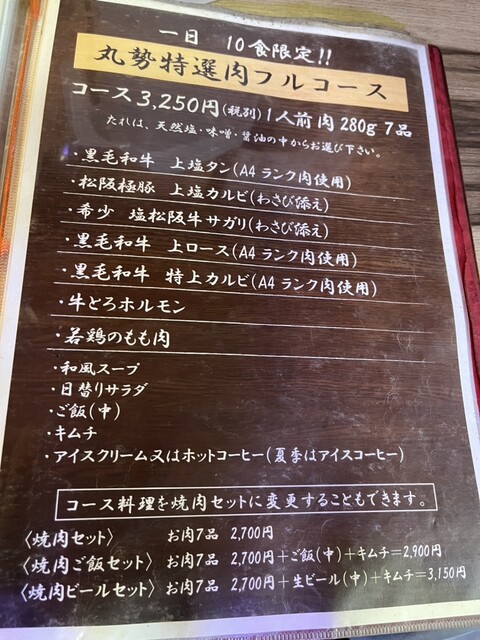 一日 10食限定!!
丸勢特選肉フルコース
コース3,250円(税別)1人前肉280g 7品
たれは、天然塩・味噌・醤油の中からお選び下さい。
・黒毛和牛 上塩タン(A4ランク肉使用)
・松阪極豚 上塩カルビ(わさび添え)
・希少 塩松阪牛サガリ(わさび添え)
・黒毛和牛 上ロース(A4ランク肉使用)
・黒毛和牛 特上カルビ(A4ランク肉使用)
・牛とろホルモン
・若鶏のもも肉
・和風スープ
・日替りサラダ
・ご飯(中)
・キムチ
・アイスクリーム又はホットコーヒー(夏季はアイスコーヒー)
コース料理を焼肉セットに変更することもできます。
〈焼肉セット〉 お肉7品 2,700円
〈焼肉ご飯セット〉 お肉7品 2,700円+ご飯(中)+キムチ=2,900円
〈焼肉ビールセット〉 お肉7品 2,700円+生ビール(中)+キムチ=3,150円